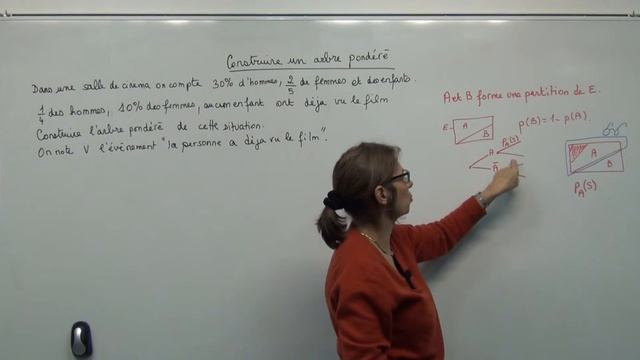 Construire un arbre pondéré
Dans une salle de cinema on compte 30% d'hommes, 2/5 de femmes et des enfants.
1/4 des hommes, 10% des femmes, aucun enfant ont déja vu le film
Construire l'arbre pondéré de cette situation.
On note V l'événement "la personne a déja vu le film".
A et B forme une partition de E.
E
A
B
p(B) = 1 - p(A).
A
P_A(S)
Ā
A
B
P_A(S)